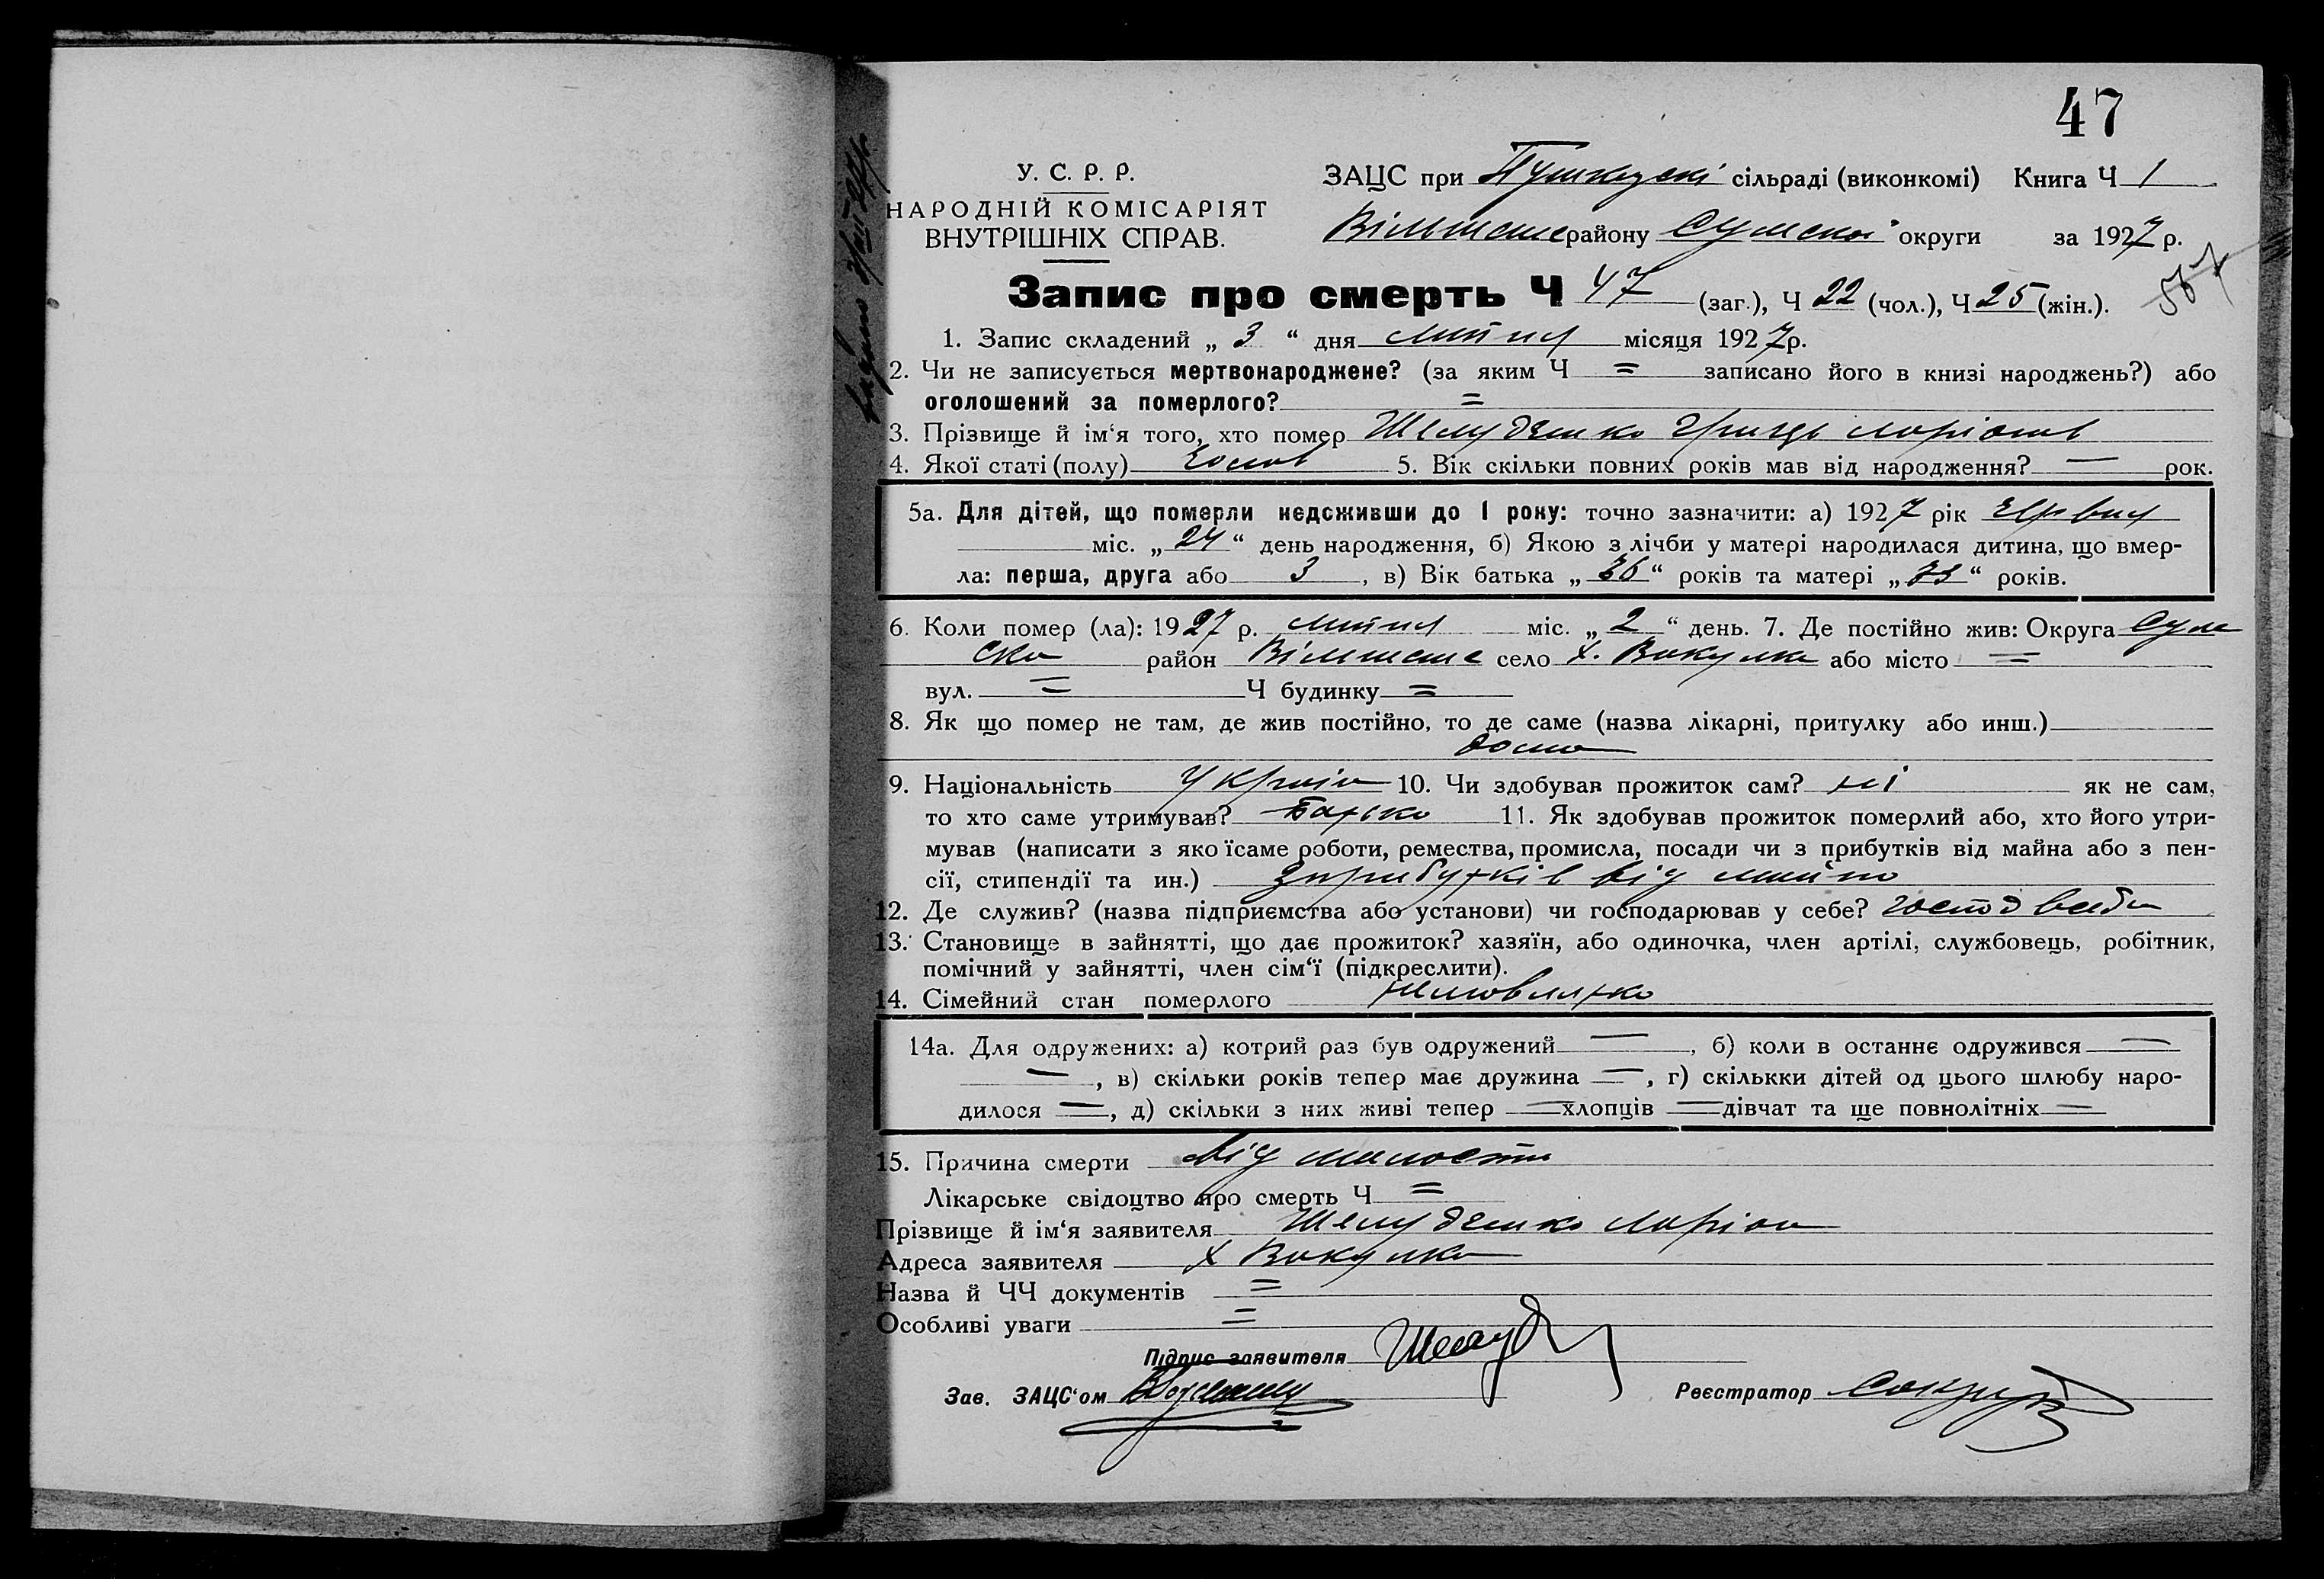 47
У. С. Р. Р.
НАРОДНІЙ КОМІСАРІЯТ
ВНУТРІШНІХ СПРАВ.
ЗАЦС при Пушкарскі сільраді (виконкомі) Книга Ч 1
Вільшане району Сумскої округи за 1927 р.
Запис про смерть Ч 47 (заг.), Ч 22 (чол.), Ч 25 (жін.).
1. Запис складений „ 3 “ дня липня місяця 1927 р.
2. Чи не записується мертвонароджене? (за яким Ч = записано його в книзі народжень?) або
оголошений за померлого? =
3. Прізвище й ім‘я того, хто помер Шелудешко Гриць Ларіонов
4. Якої статі (полу) Голов 5. Вік скільки повних років мав від народження? — рок.
5а. Для дітей, що померли недоживши до 1 року: точно зазначити: а) 1927 рік Червня
міс. „ 24 “ день народження, б) Якою з лічби у матері народилася дитина, що вмер-
ла: перша, друга або 3, в) Вік батька „ 36 “ років та матері „ 33 “ років.
6. Коли помер (ла): 1927 р. липня міс. „ 2 “ день. 7. Де постійно жив: Округа Сум
ска район Вільшане село х. Вакулка або місто =
вул. = Ч будинку =
8. Як що помер не там, де жив постійно, то де саме (назва лікарні, притулку або инш.)
дома
9. Національність Україн 10. Чи здобував прожиток сам? ні як не сам,
то хто саме утримував? Батько 11. Як здобував прожиток померлий або, хто його утри-
мував (написати з яко їсаме роботи, ремества, промисла, посади чи з прибутків від майна або з пен-
сії, стипендії та ин.) з прибутків від майна
12. Де служив? (назва підприємства або установи) чи господарював у себе? господ в себе
13. Становище в зайнятті, що дає прожиток? хазяїн, або одиночка, член артілі, службовець, робітник,
помічний у зайнятті, член сім‘ї (підкреслити).
14. Сімейний стан померлого немовлятко
14а. Для одружених: а) котрий раз був одружений —, б) коли в останнє одружився —
—, в) скільки років тепер має дружина —, г) скількки дітей од цього шлюбу наро-
дилося —, д) скільки з них живі тепер — хлопців — дівчат та ще повнолітніх —
15. Причина смерти від малости
Лікарське свідоцтво про смерть Ч =
Прізвище й ім‘я заявителя Шелудешко Ларіон
Адреса заявителя х Вакулка
Назва й ЧЧ документів =
Особливі уваги =
Підпис заявителя Шелуд
Зав. ЗАЦС‘ом
Реєстратор